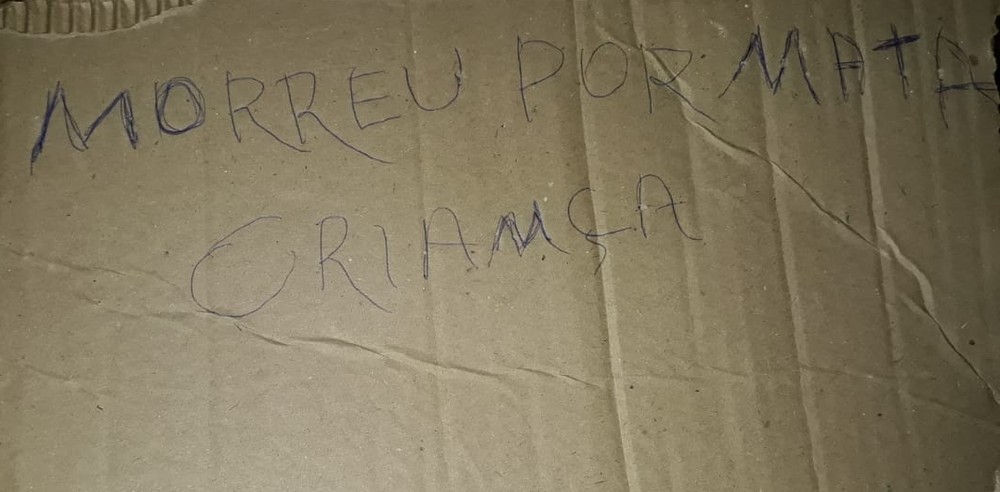 MORREU POR MATA
CRIAMÇA